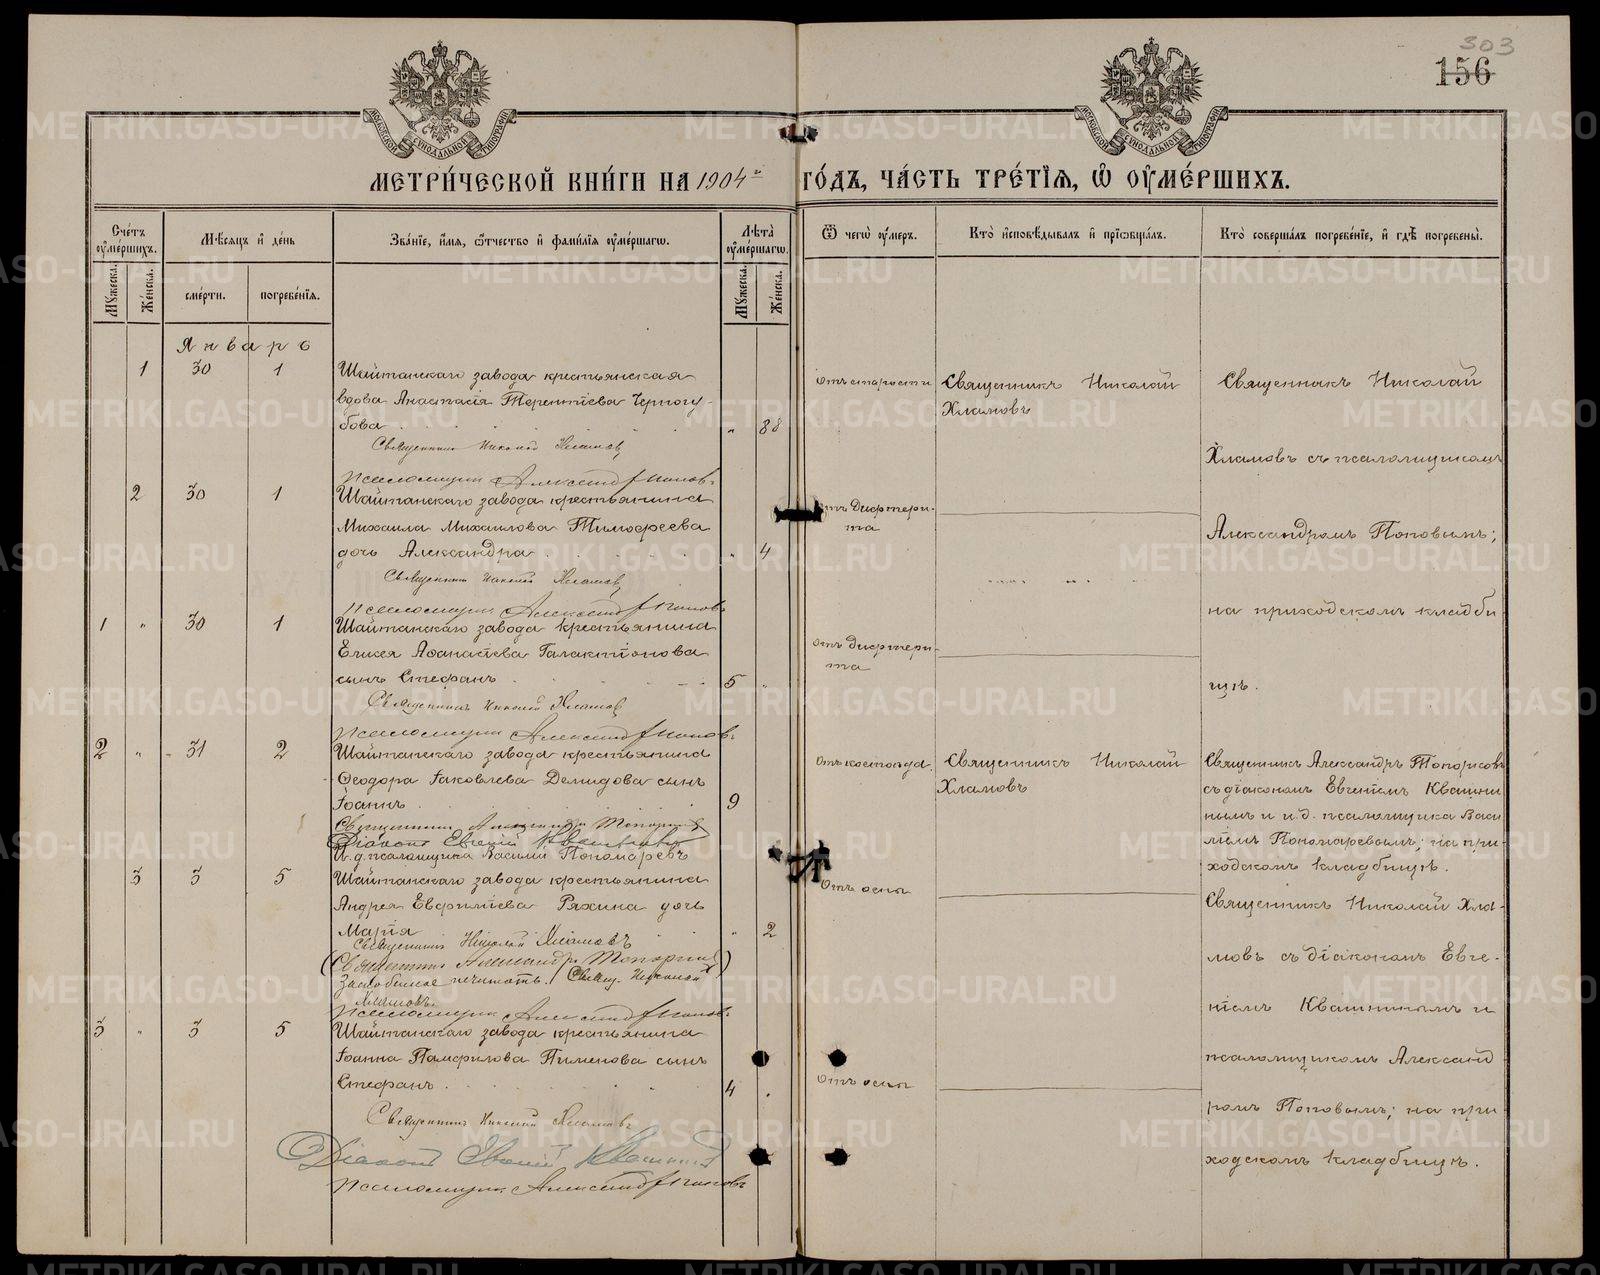 303
156
МОСКОВСКОЙ СѴНОДАЛЬНОЙ ТИПОГРАФІИ
МОСКОВСКОЙ СѴНОДАЛЬНОЙ ТИПОГРАФІИ
МЕТРИ́ЧЕСКОЙ КНИ́ГИ НА 1904й ГО́ДЪ, ЧА́СТЬ ТРЕ́ТІѦ, Ѡ҆ ОУ҆МЕ́РШИХЪ.
Сче́тъ оу҆ме́ршихъ.
Мꙋ́жеска.
Же́нска.
Мѣ́сѧцъ и҆ де́нь
сме́рти.
погребе́нїѧ.
Зва́нїе, и҆́мѧ, ѻ҆́тчество и҆ фамѝлїѧ оу҆ме́ршагѡ.
Лѣ́та оу҆ме́ршагѡ.
Мꙋ́жеска.
Же́нска.
Ѿ чегѡ̀ оу҆́меръ.
Кто̀ и҆сповѣ́дывалъ и҆ прїѡбща́лъ.
Кто̀ соверша́лъ погребе́нїе, и҆ гдѣ̀ погребены̀.
Январь
1 30 1
Шайтанскаго завода крестьянская
вдова Анастасія Терентіева Черногу-
бова . . . . . „ 88
Священникъ Николай Хламовъ
Псаломщикъ Александръ Поповъ
отъ старости
Священникъ Николай
Хламовъ
Священникъ Николай
Хламовъ съ псаломщикомъ
Александромъ Поповымъ;
на приходскомъ кладби-
щѣ.
2 30 1
Шайтанскаго завода крестьянина
Михаила Михаилова Тимофеева
дочь Александра . . . . „ 4
Священникъ Николай Хламовъ
Псаломщикъ Александръ Поповъ
отъ Дифтери-
та
1 „ 30 1
Шайтанскаго завода крестьянина
Елисея Аѳанасіева Галактіонова
сынъ Стефанъ . . . . 5 „
Священникъ Николай Хламовъ
Псаломщикъ Александръ Поповъ
отъ Дифтери-
та
2 „ 31 2
Шайтанскаго завода крестьянина
Ѳеодора Іаковлева Демидова сынъ
Іоаннъ . . . . 9
Священникъ Александръ Топорковъ
Діаконъ Евгеній Квашнинъ
И. д. псаломщика Василій Пономаревъ
отъ костоѣда.
Священникъ Николай
Хламовъ
Священникъ Александръ Топорковъ
съ діакономъ Евгеніемъ Квашни-
нымъ и и. д. псаломщика Васи-
ліемъ Пономаревымъ; на при-
ходскомъ кладбищѣ.
3 3 5
Шайтанскаго завода крестьянина
Андрея Евфиміева Ряхина дочь
Марія „ 2
Священникъ Николай Хламовъ
(Священникъ Александръ Топорковъ)
Заскобленое нечитать. Свящ. Николай
Хламовъ.
Псаломщикъ Александръ Поповъ
Отъ оспы
Священникъ Николай Хла-
мовъ съ діакономъ Евге-
ніемъ Квашнинымъ и
псаломщикомъ Александ-
ромъ Поповымъ; на при-
ходскомъ кладбищѣ.
3 „ 3 5
Шайтанскаго завода крестьянина
Іоанна Памфилова Пименова сынъ
Стефанъ . . . . 4 „
Священникъ Николай Хламовъ
Діаконъ Евгеній Квашнинъ
Псаломщикъ Александръ Поповъ
Отъ оспы
METRIKI.GASO-URAL.RU